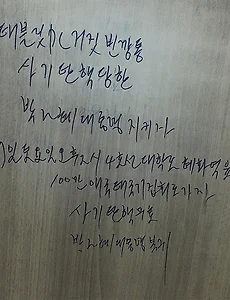 태블릿PC 거짓 빈깡통
사기탄핵당한
박근혜대통령 지키자
오후2시 4호선 대학로 혜화역
100만 애국태극기집회로 가자
사기탄핵무효
박근혜대통령복귀